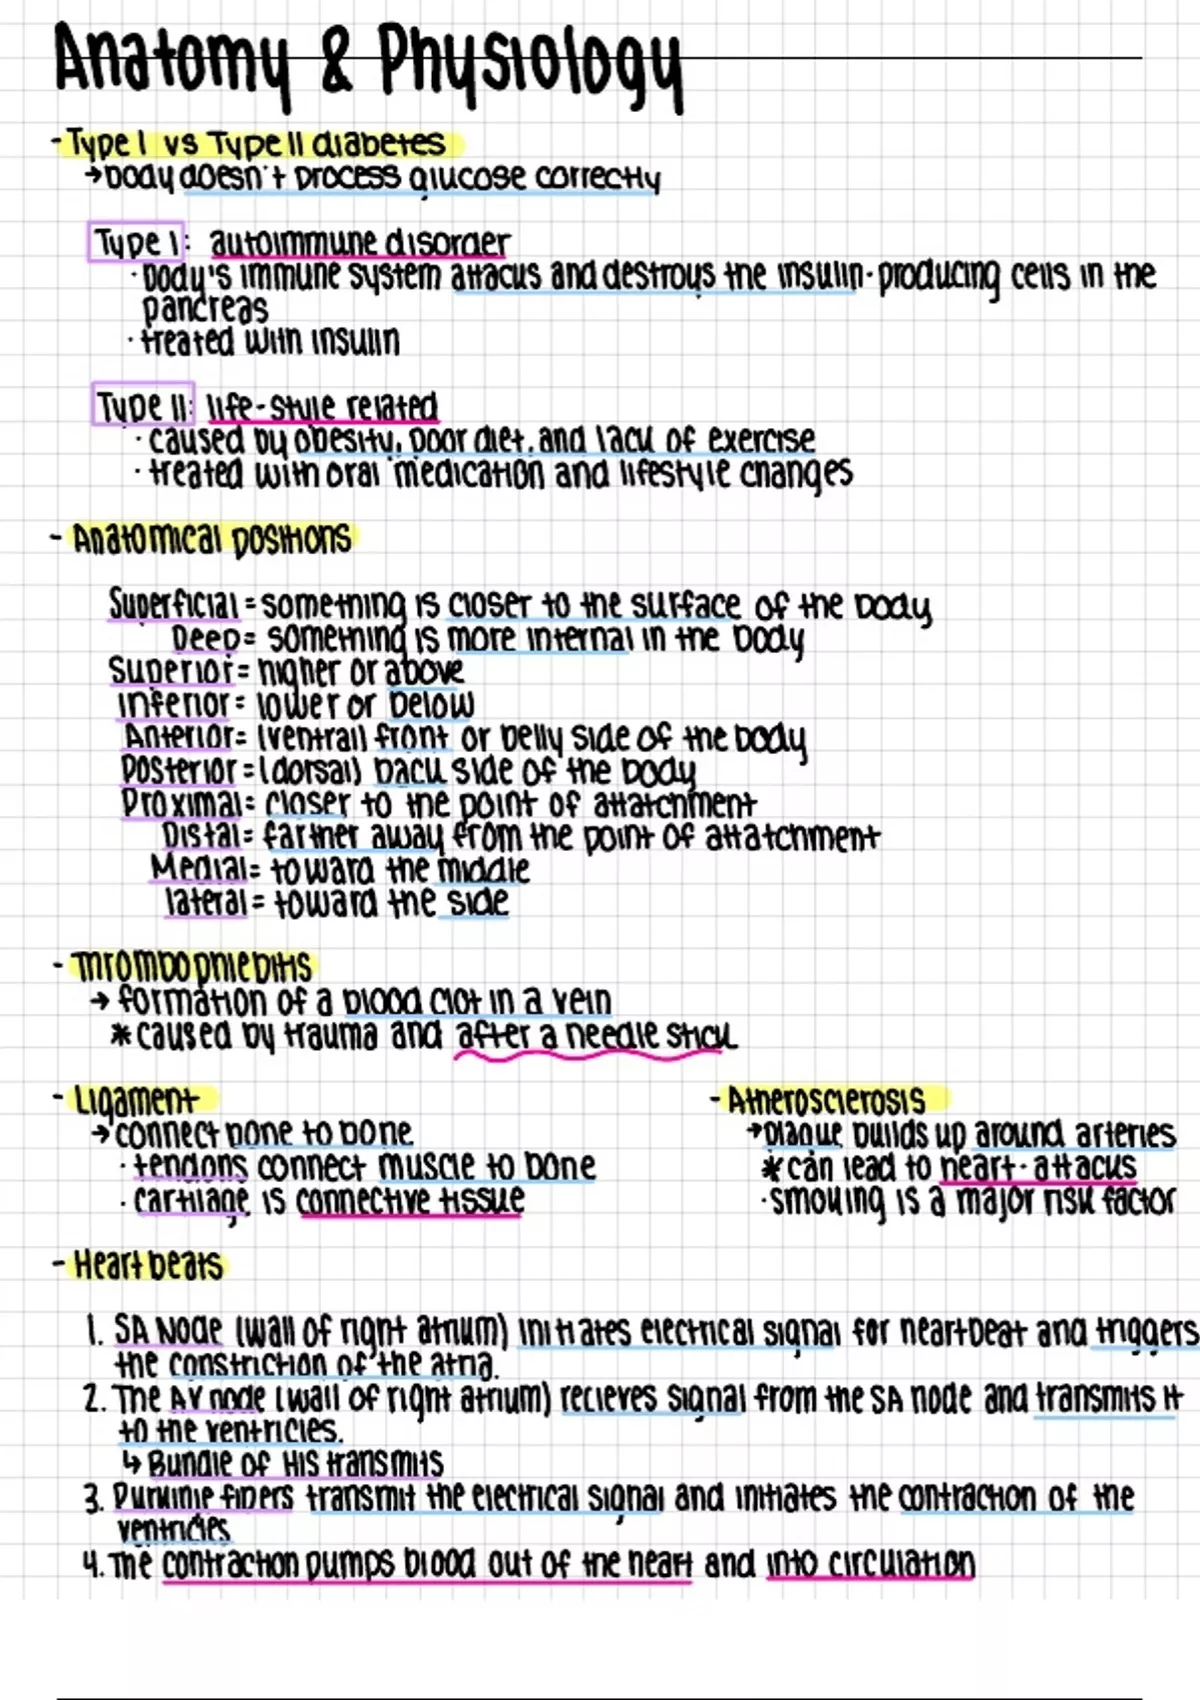 Anatomy & Physiology
- Type I vs Type II diabetes
→ body doesn't process glucose correctly
Type I: autoimmune disorder
· body's immune system attacks and destroys the insulin-producing cells in the
pancreas
· treated with insulin
Type II: life-style related
· caused by obesity, poor diet, and lack of exercise
· treated with oral medication and lifestyle changes
- Anatomical positions
Superficial = something is closer to the surface of the body
Deep = something is more internal in the body
Superior = higher or above
Inferior = lower or below
Anterior = (ventral) front or belly side of the body
Posterior = (dorsal) back side of the body
Proximal = closer to the point of attatchment
Distal = farther away from the point of attatchment
Medial = toward the middle
lateral = toward the side
- Thrombophlebitis
→ formation of a blood clot in a vein
* caused by trauma and after a needle stick
- Ligament
→ connect bone to bone
· tendons connect muscle to bone
· cartilage is connective tissue
- Atherosclerosis
→ plaque builds up around arteries
* can lead to heart-attacks
· smoking is a major risk factor
- Heart beats
1. SA Node (wall of right atrium) initiates electrical signal for heartbeat and triggers
the constriction of the atria.
2. The AV node (wall of right atrium) recieves signal from the SA node and transmits it
to the ventricles.
↳ Bundle of His transmits
3. Purkinje fibers transmit the electrical signal and initiates the contraction of the
ventricles
4. The contraction pumps blood out of the heart and into circulation